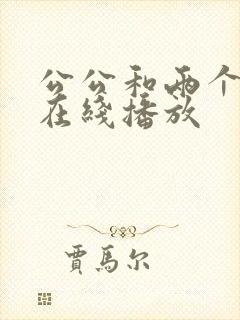 公公和两个
在线播放
贾马尔